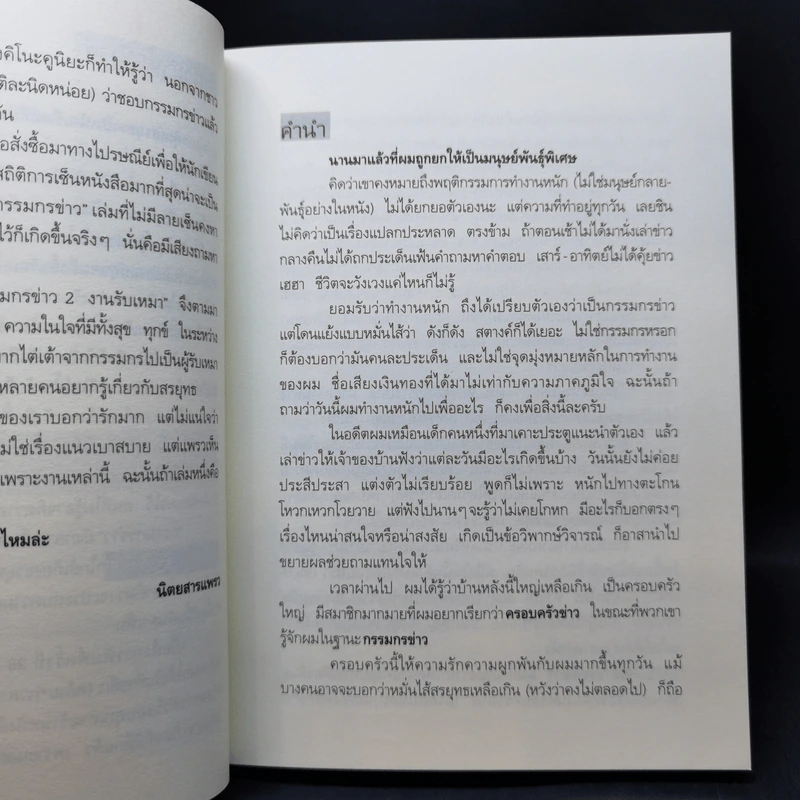 งคิโนะคูนิยะก็ทำให้รู้ว่า นอกจากชาว
ติละนิดหน่อย) ว่าชอบกรรมกรข่าวแล้ว
กัน
อสั่งซื้อมาทางไปรษณีย์เพื่อให้นักเขียน
สถิติการเซ็นหนังสือมากที่สุดน่าจะเป็น
กรรมกรข่าว" เล่มที่ไม่มีลายเซ็นคงหา
ไว้ก็เกิดขึ้นจริงๆ นั่นคือมีเสียงถามหา
รมกรข่าว 2 งานรับเหมา" จึงตามมา
ความในใจที่มีทั้งสุข ทุกข์ ในระหว่าง
ากไต่เต้าจากกรรมกรไปเป็นผู้รับเหมา
หลายคนอยากรู้เกี่ยวกับสรยุทธ
ของเราบอกว่ารักมาก แต่ไม่แน่ใจว่า
ม่ใช่เรื่องแนวเบาสบาย แต่แพรวเห็น
เพราะงานเหล่านี้ ฉะนั้นถ้าเล่มหนึ่งคือ
ไหมล่ะ
นิตยสารแพรว
คำนำ
นานมาแล้วที่ผมถูกยกให้เป็นมนุษย์พันธุ์พิเศษ
คิดว่าเขาคงหมายถึงพฤติกรรมการทำงานหนัก (ไม่ใช่มนุษย์กลาย-
พันธุ์อย่างในหนัง) ไม่ได้ยกยอตัวเองนะ แต่ความที่ทำอยู่ทุกวัน เลยชิน
ไม่คิดว่าเป็นเรื่องแปลกประหลาด ตรงข้าม ถ้าตอนเช้าไม่ได้มานั่งเล่าข่าว
กลางคืนไม่ได้ถกประเด็นเฟ้นคำถามหาคำตอบ เสาร์-อาทิตย์ไม่ได้คุ้ยข่าว
เฮฮา ชีวิตจะวังเวงแค่ไหนก็ไม่รู้
ยอมรับว่าทำงานหนัก ถึงได้เปรียบตัวเองว่าเป็นกรรมกรข่าว
แต่โดนแย้งแบบหมั่นไส้ว่า ดังก็ดัง สตางค์ก็ได้เยอะ ไม่ใช่กรรมกรหรอก
ก็ต้องบอกว่ามันคนละประเด็น และไม่ใช่จุดมุ่งหมายหลักในการทำงาน
ของผม ชื่อเสียงเงินทองที่ได้มาไม่เท่ากับความภาคภูมิใจ ฉะนั้นถ้า
ถามว่าวันนี้ผมทำงานหนักไปเพื่ออะไร ก็คงเพื่อสิ่งนี้ละครับ
ในอดีตผมเหมือนเด็กคนหนึ่งที่มาเคาะประตูแนะนำตัวเอง แล้ว
เล่าข่าวให้เจ้าของบ้านฟังว่าแต่ละวันมีอะไรเกิดขึ้นบ้าง วันนั้นยังไม่ค่อย
ประสีประสา แต่งตัวไม่เรียบร้อย พูดก็ไม่เพราะ หนักไปทางตะโกน
โหวกเหวกโวยวาย แต่ฟังไปนานๆจะรู้ว่าไม่เคยโกหก มีอะไรก็บอกตรงๆ
เรื่องไหนน่าสนใจหรือน่าสงสัย เกิดเป็นข้อวิพากษ์วิจารณ์ ก็อาสานำไป
ขยายผลช่วยถามแทนใจให้
เวลาผ่านไป ผมได้รู้ว่าบ้านหลังนี้ใหญ่เหลือเกิน เป็นครอบครัว
ใหญ่ มีสมาชิกมากมายที่ผมอยากเรียกว่าครอบครัวข่าว ในขณะที่พวกเขา
รู้จักผมในฐานะกรรมกรข่าว
ครอบครัวนี้ให้ความรักความผูกพันกับผมมากขึ้นทุกวัน แม้
บางคนอาจจะบอกว่าหมั่นไส้สรยุทธเหลือเกิน (หวังว่าคงไม่ตลอดไป) ก็ถือ